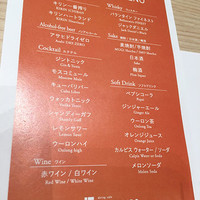 キリン一番搾り
キリンハートランド
Alcohol-free beer ノンアルコールビール
アサヒドライゼロ
Asahi DRY ZERO
Cocktail カクテル
ジントニック
Gin & Tonic
モスコミュール
Moscow Mule
キューバリバー
Cuba Libre
ウォッカトニック
Vodka Tonic
シャンディーガフ
Shandy Gaff
レモンサワー
Lemon Sour
ウーロンハイ
Oolong high
Wine ワイン
赤ワイン / 白ワイン
Red Wine / White Wine
Whisky
バランタイン ファイネスト
ジャックダニエル
Sake
麦焼酎/芋焼酎
日本酒
Sake
梅酒
Soft Drink
ペプシコーラ
Pepsi
ジンジャーエール
Ginger Ale
ウーロン茶
Oolong Tea
オレンジジュース
Orange Juice
カルピス ウォーター / ソーダ
Calpis Water or Soda
メロンソーダ
Melon Soda